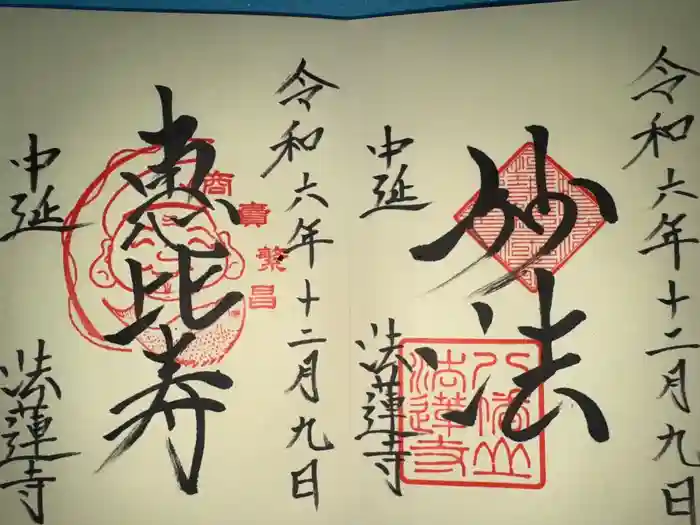 令和六年十二月九日
妙法
中延
法蓮寺
令和六年十二月九日
恵比寿
商賣繁昌
中延
法蓮寺